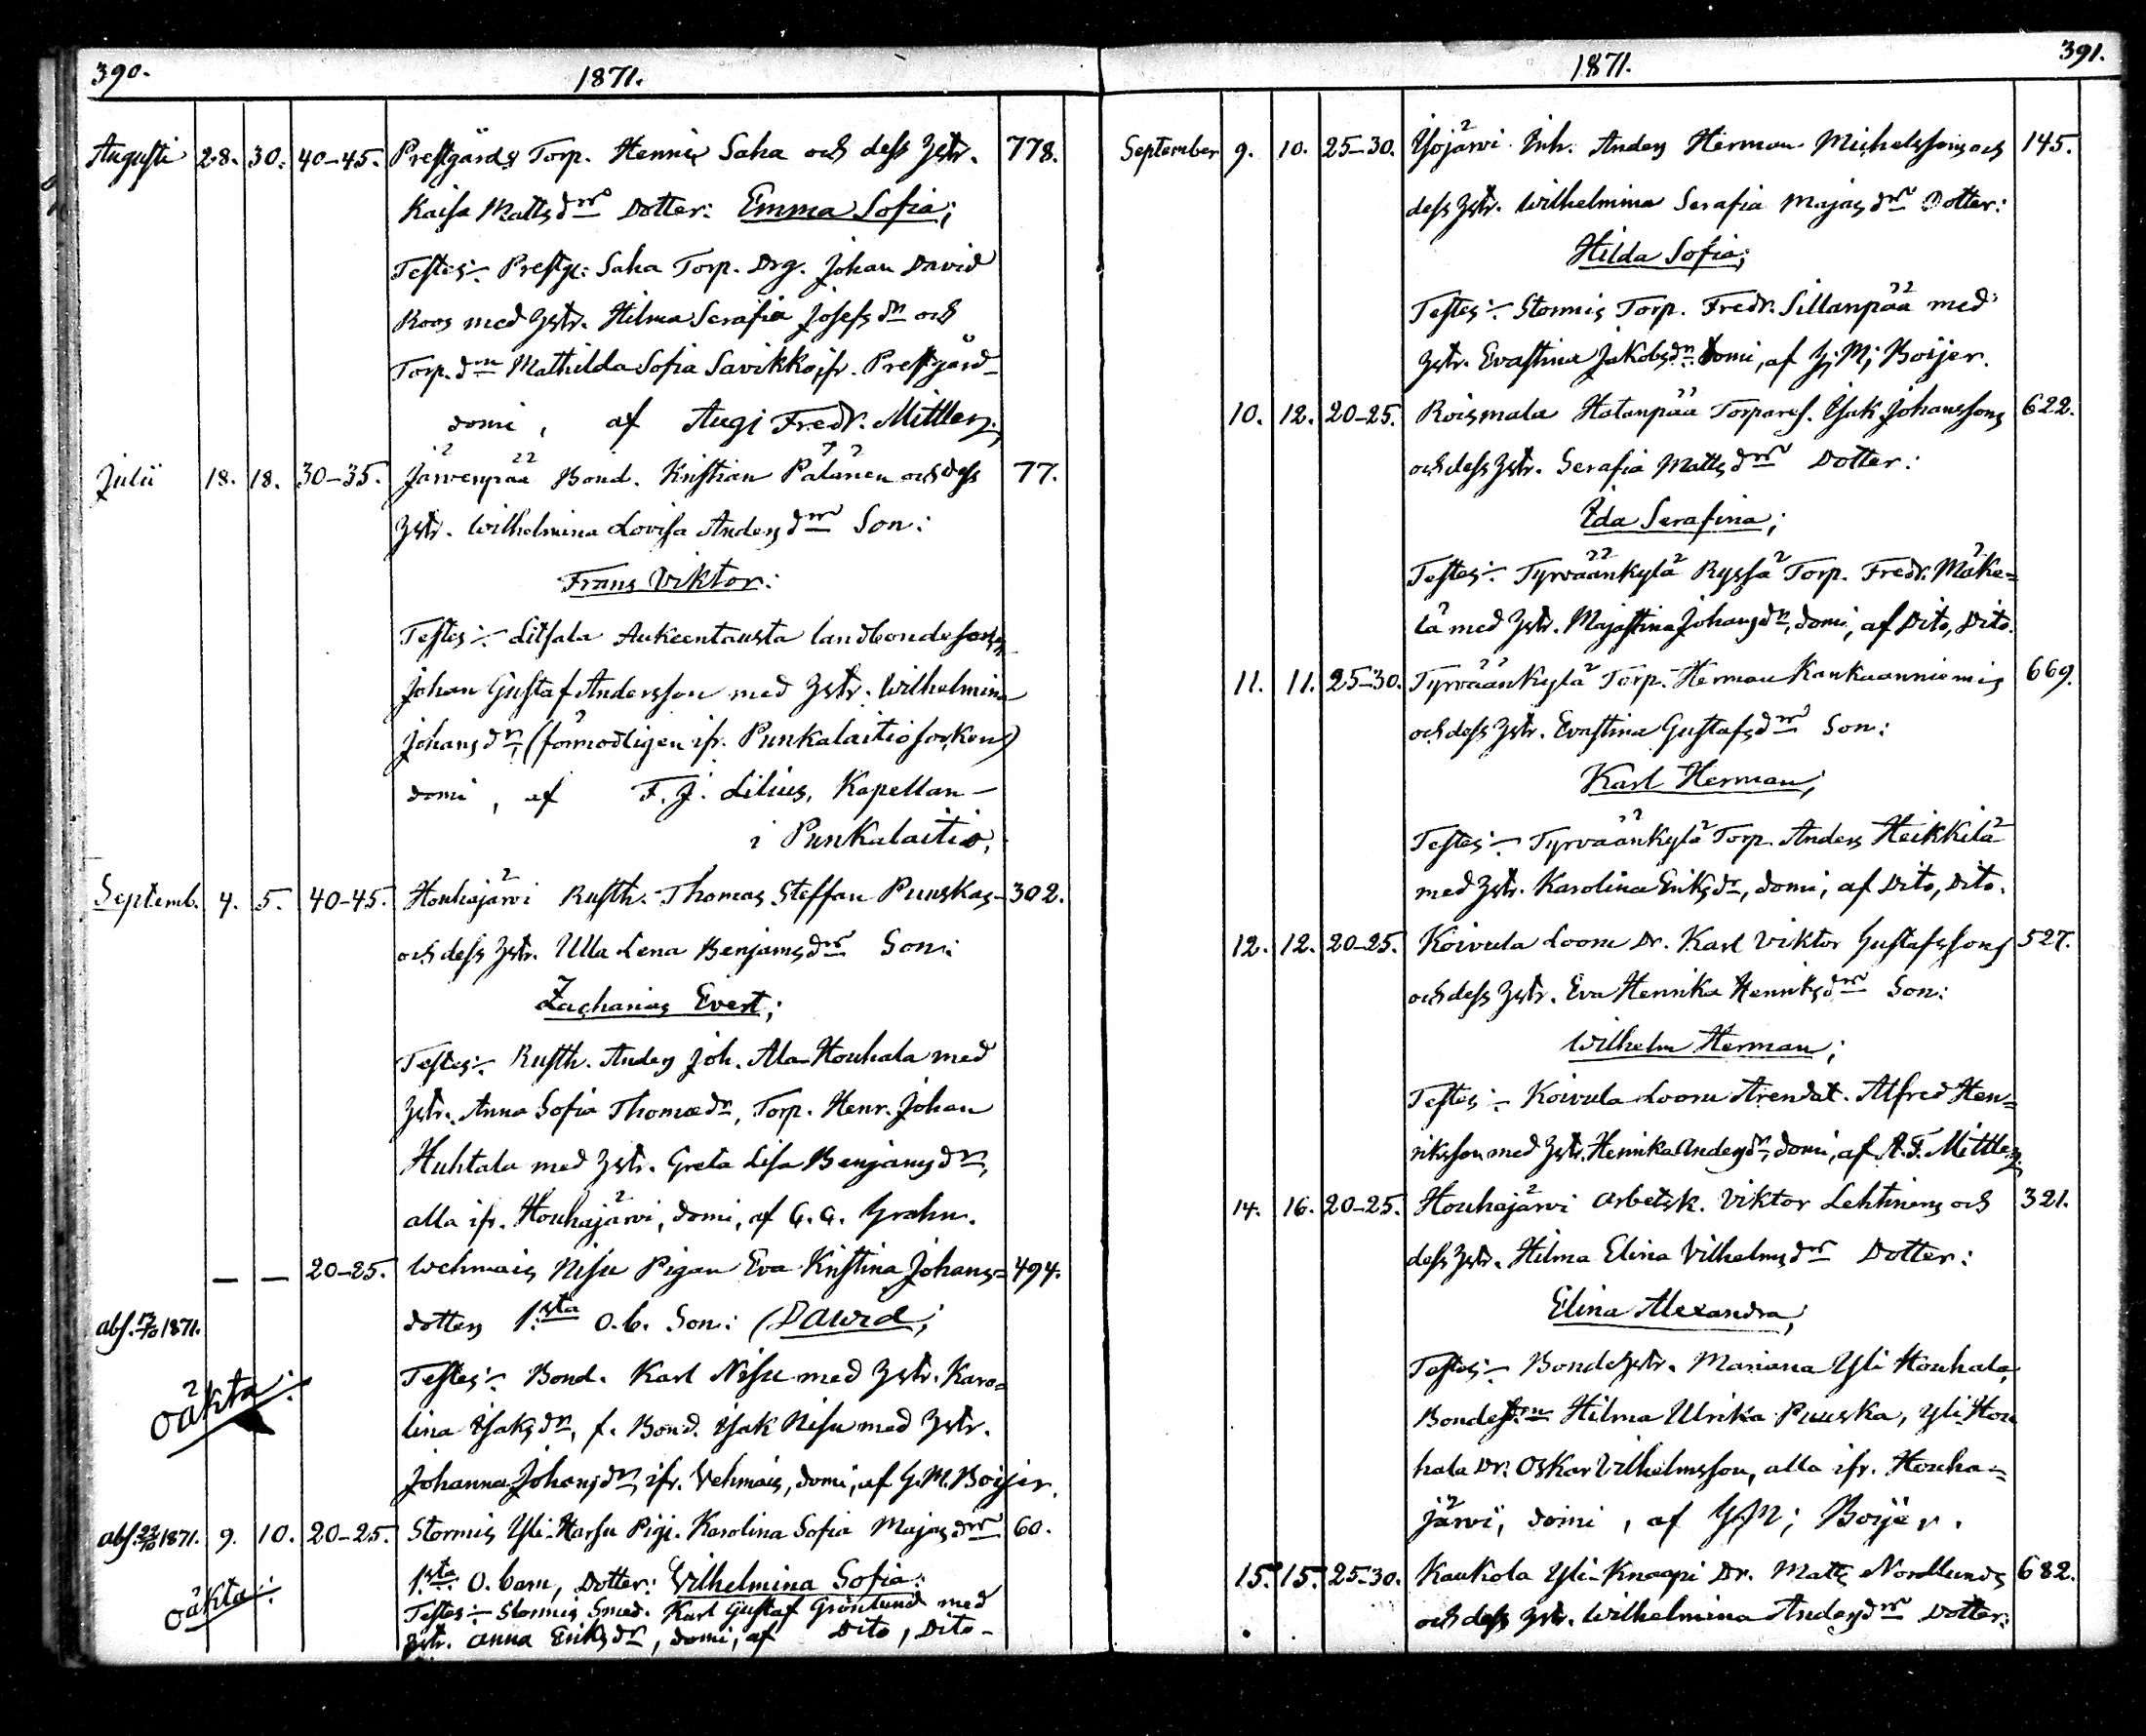 390.
1871.
Augusti 28. 30. 40-45. Prestgårds Torp. Hennis Saha och dess Hstr. 778.
Kaisa Mattsdrs Dotter: Emma Sofia;
Testes:- Prestg: Saha Torp. Drg. Johan David
Roos med Hstr. Hilma Serafia Josefsdr och
Torp.drn Mathilda Sofia Savikko, ifr. Prestgård
domi, af Aug: Fredr. Mittler.
Julii 18. 18. 30-35. Järvenpää Bond. Kristian Pälänen och dess 77.
Hstr. Wilhelmina Lovisa Andersdrs Son:
Frans Viktor:
Testes:- Litsala Aukeentausta landbondesonen
Johan Gustaf Andersson med Hstr. Wilhelmina
Johansdr, (förmodligen ifr. Punkalaitio socken)
domi, af F. J. Lilius, Kapellan
i Punkalaitio.
Septemb. 4. 5. 40-45. Houhajärvi Rusth. Thomas Steffan Puuskas 302.
och dess Hstr. Ulla Lena Benjamsdrs Son:
Zacharias Evert;
Testes:- Rusth. Anders Joh. Ala-Houhala med
Hstr. Anna Sofia Thomædr, Torp. Henr. Johan
Huhtala med Hstr. Greta Lisa Benjamsdr,
alla ifr. Houhajärvi, domi, af G. G. Grahn.
— — 20-25. Wehmais Nisu Pigan Eva Kristina Johans= 494.
abs. 1871. dotters 1.sta O.b. Son: David;
oäkta:
Testes:- Bond. Karl Nisu med Hstr. Karo=
lina Isaksdr, f. Bond. Isak Nisu med Hstr.
Johanna Johansdr, ifr. Vehmais, domi, af G. M. Boijer.
abs. 1871. 9. 10. 20-25. Stormis Yli-Harsu Pig. Karolina Sofia Majasdrs 60.
oäkta:
1.sta O. barn, Dotter: Vilhelmina Sofia:
Testes:- Stormis Smed. Karl Gustaf Grönlund med
Hstr. Anna Eriksdr, domi, af Dito, Dito.
1871.
391.
September 9. 10. 25-30. Isojärvi Inh. Anders Herman Michelssons och 145.
dess Hstr. Wilhelmina Serafia Majasdrs Dotter:
Hilda Sofia;
Testes:- Stormis Torp. Fredr. Sillanpää med
Hstr. Evastina Jakobsdr, domi, af G. M; Boijer.
10. 12. 20-25. Roismala Hatanpää Torpares. Isak Johanssons 622.
och dess Hstr. Serafia Mattsdrs Dotter:
Ida Serafina;
Testes:- Tyrväänkylä Ryssä Torp. Fredr. Mäke=
lä med Hstr. Majastina Johansdr, domi, af Dito, Dito.
11. 11. 25-30. Tyrväänkylä Torp. Herman Kankaanniemis 669.
och dess Hstr. Evastina Gustafsdrs Son:
Karl Herman;
Testes:- Tyrväänkylä Torp. Anders Heikkilä
med Hstr. Karolina Eriksdr, domi, af Dito, Dito.
12. 12. 20-25. Koivula Loorn Dr. Karl Viktor Gustafssons 527.
och dess Hstr. Eva Henrika Henriksdrs Son:
Wilhelm Herman;
Testes:- Koivula Loorn Arendat. Alfred Hen=
riksson med Hstr. Henrika Andersdr, domi, af A. F. Mittler.
14. 16. 20-25. Houhajärvi arbetsk. Viktor Lehtinens och 321.
dess Hstr. Hilma Elina Vilhelmsdrs Dotter:
Elina Alexandra;
Testes:- Bondehstr. Mariana Yli Houhala,
Bondedrn Hilma Ulrika Puuska, Yli Hou
hala Dr. Oskar Vilhelmsson, alla ifr. Houha=
järvi, domi, af G. M; Boijer.
15. 15. 25-30. Kaukola Yli-Knaapi Dr. Matts Nordlunds 682.
och dess Hstr. Wilhelmina Andersdrs Dotter: